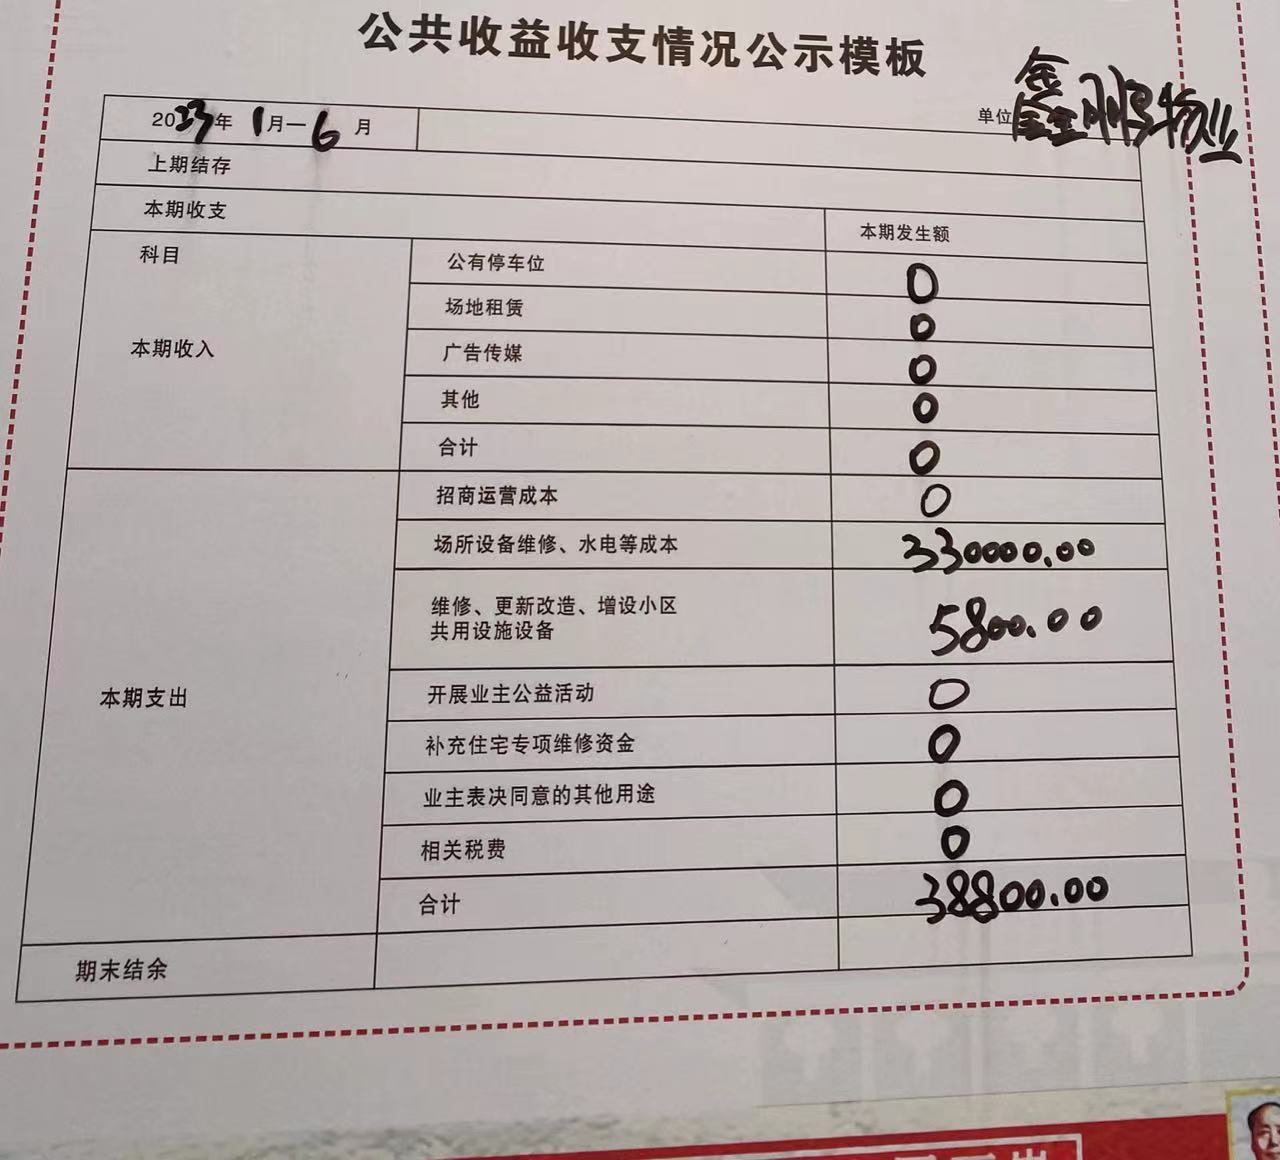 公共收益收支情况公示模板
2023年 1月—6月
单位 鑫鹏物业
上期结存
本期收支 本期发生额
科目
本期收入
公有停车位 0
场地租赁 0
广告传媒 0
其他 0
合计 0
本期支出
招商运营成本 0
场所设备维修、水电等成本 330000.00
维修、更新改造、增设小区
共用设施设备 5800.00
开展业主公益活动 0
补充住宅专项维修资金 0
业主表决同意的其他用途 0
相关税费 0
合计 38800.00
期末结余